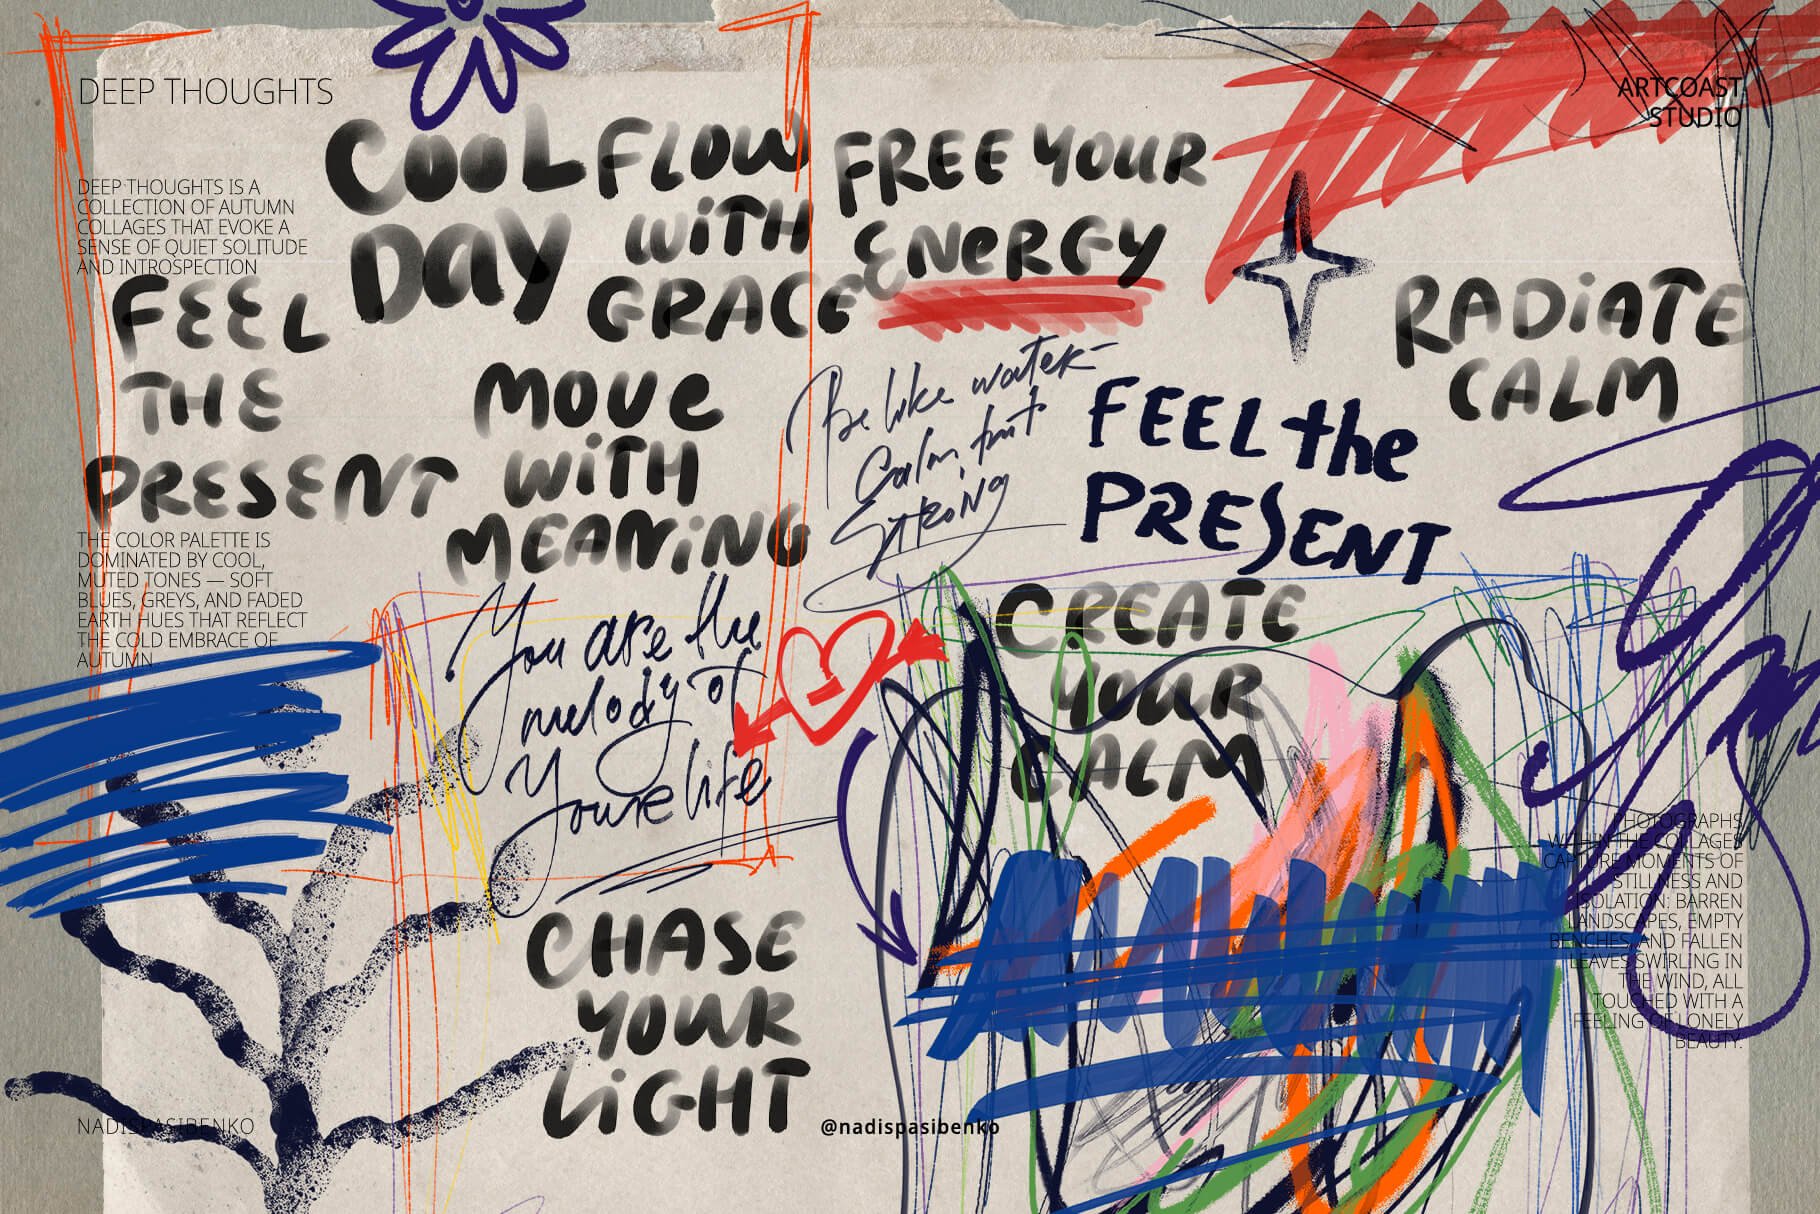 DEEP THOUGHTS
ARTCOAST
STUDIO
DEEP THOUGHTS IS A
COLLECTION OF AUTUMN
COLLAGES THAT EVOKE A
SENSE OF QUIET SOLITUDE
AND INTROSPECTION
COOL
DAY
FLOW
WiTH
GRACE
FREE YOUR
ENeRGY
RADiATE
CALM
FEEL
THE
PRESENT
MOVE
WiTH
MEANiNG
Be like water-
Calm, but
STRONG
FEEL the
PRESENT
THE COLOR PALETTE IS
DOMINATED BY COOL,
MUTED TONES — SOFT
BLUES, GREYS, AND FADED
EARTH HUES THAT REFLECT
THE COLD EMBRACE OF
AUTUMN
You are the
melody of
Youre life
CREATE
YOUR
CALM
CHASE
YOUR
LiGHT
PHOTOGRAPHS
WITHIN THE COLLAGES
CAPTURE MOMENTS OF
STILLNESS AND
ISOLATION: BARREN
LANDSCAPES, EMPTY
BENCHES, AND FALLEN
LEAVES SWIRLING IN
THE WIND, ALL
TOUCHED WITH A
FEELING OF LONELY
BEAUTY.
NADISPASIBENKO
@nadispasibenko